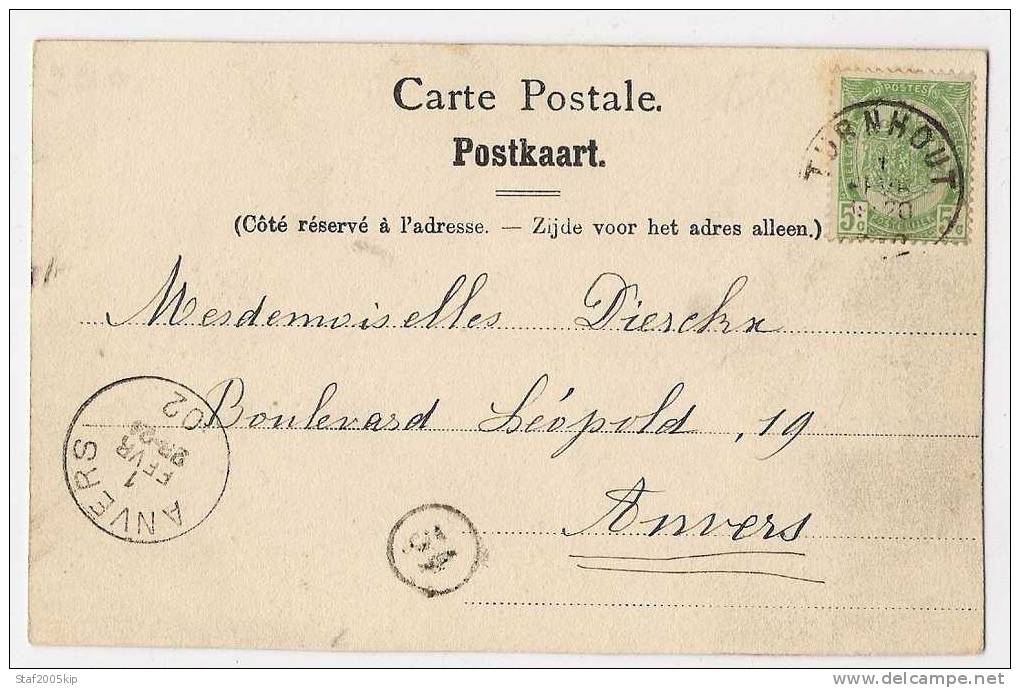 Carte Postale.
Postkaart.
(Côté réservé à l'adresse. — Zijde voor het adres alleen.)
POSTES
5c 5c
TURNHOUT
1
20
Mesdemoiselles Dierckx
Boulevard Léopold, 19
Anvers
ANVERS
1
FEVR
02
Staf2005kip
delcampe.net